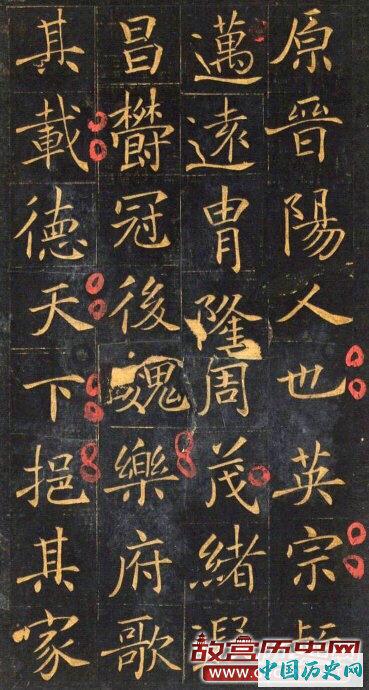 原晉陽人也英宗
邁遠冑隆周茂緒
昌欝冠後魏樂府歌
其載德天下挹其家
故宫历史网
中国历史网